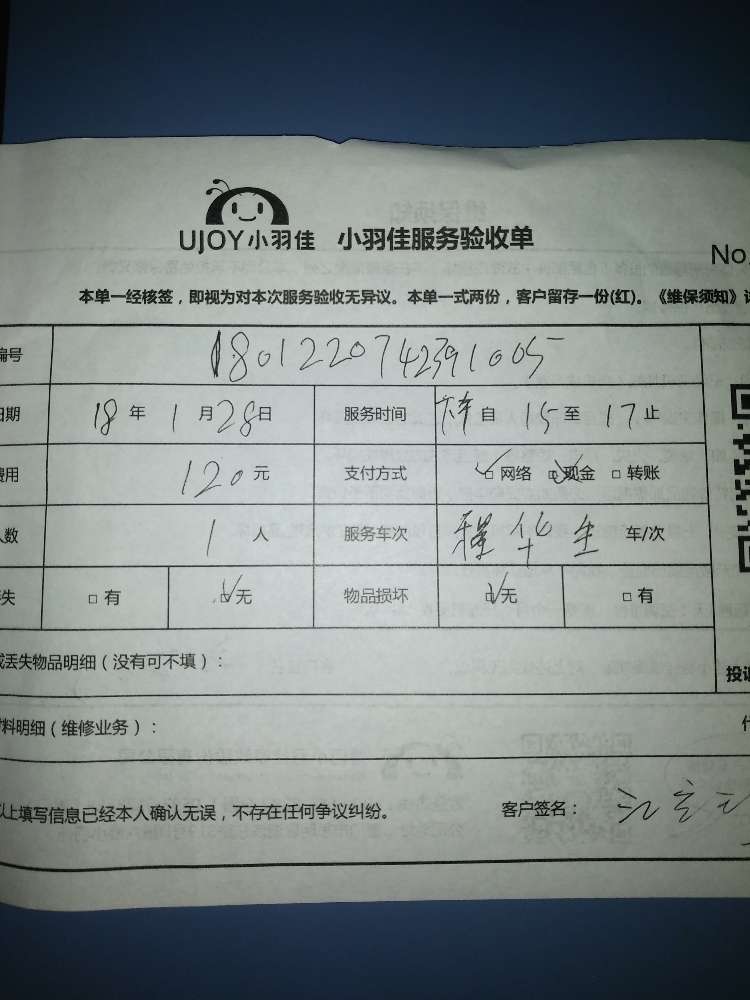 UJOY小羽佳 小羽佳服务验收单
No.
本单一经核签，即视为对本次服务验收无异议。本单一式两份，客户留存一份(红)。《维保须知》
编号 1801220742391005
日期 18年1月28日 服务时间 自15至17止
费用 120元 支付方式 □网络 □现金 □转账
人数 1人 服务车次 程华生 车/次
失 □有 □无 物品损坏 □无 □有
或丢失物品明细（没有可不填）：
投诉
材料明细（维修业务）：
以上填写信息已经本人确认无误，不存在任何争议纠纷。 客户签名：